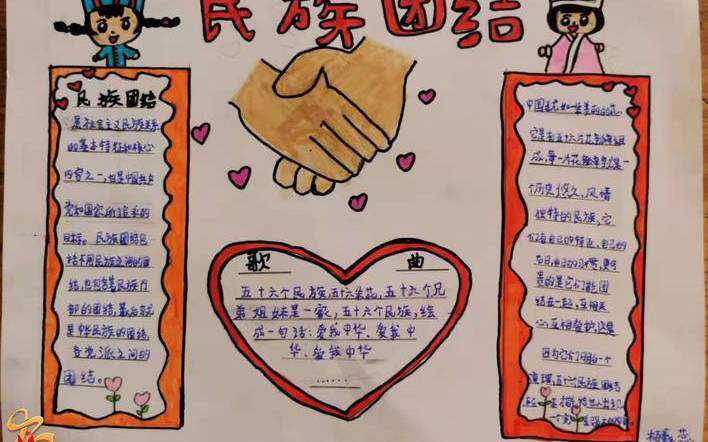 民族团结
民族团结
是社会主义民族关系
的基本特征和核心
内容之一,也是中国共产
党和国家所追求的
目标。民族团结包
括不同民族之间的团
结,也包括民族内
部的团结,最后就
是中华民族的团结,
各党派之间的
团结。
歌 曲
五十六个民族,五十六朵花,五十六个兄
弟姐妹是一家,五十六个民族,绘
成一句话:爱我中华、爱我中
华、爱我中华
……
中国是花如坐美丽的花
它是有五十六片花瓣组
成,每一片花瓣
个历史悠久,风情
独特的民族,它
们有自己的特征,自己的
节日,自己的习惯,更可
贵的是它们能团
结在一起,互相关
心互相爱护,这是
因为它们明白一个
道理,五十六民族团结
一个